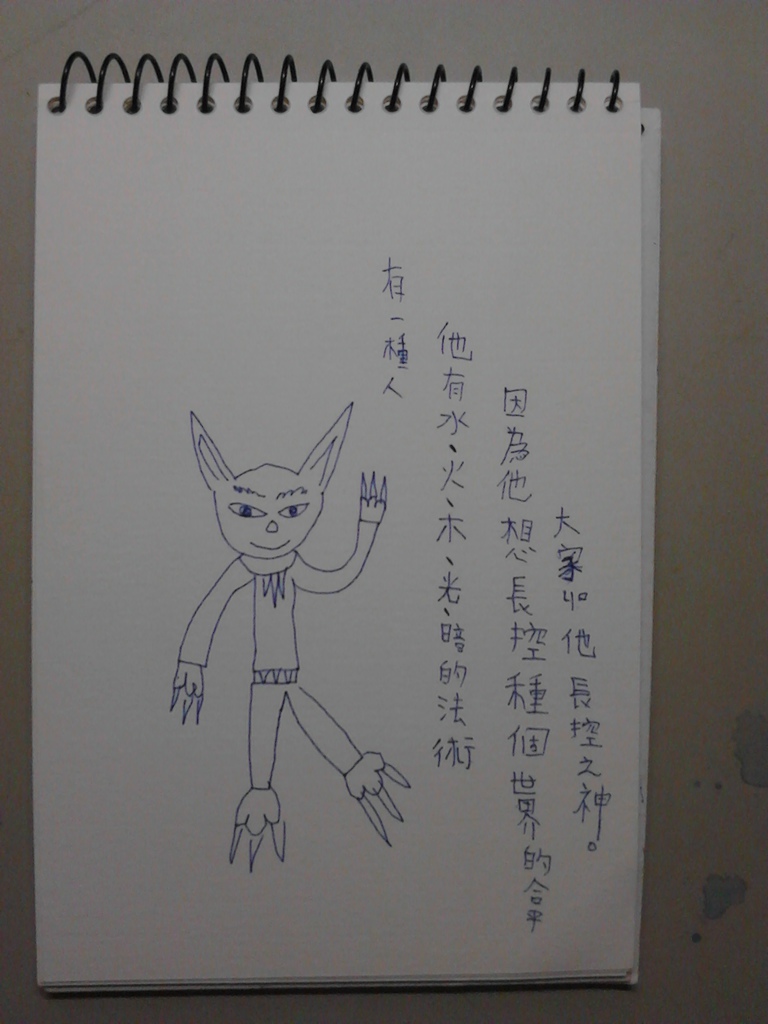 有一種人
他有水、火、木、光、暗的法術
因為他想長控種個世界的合平
大家叫他長控之神。